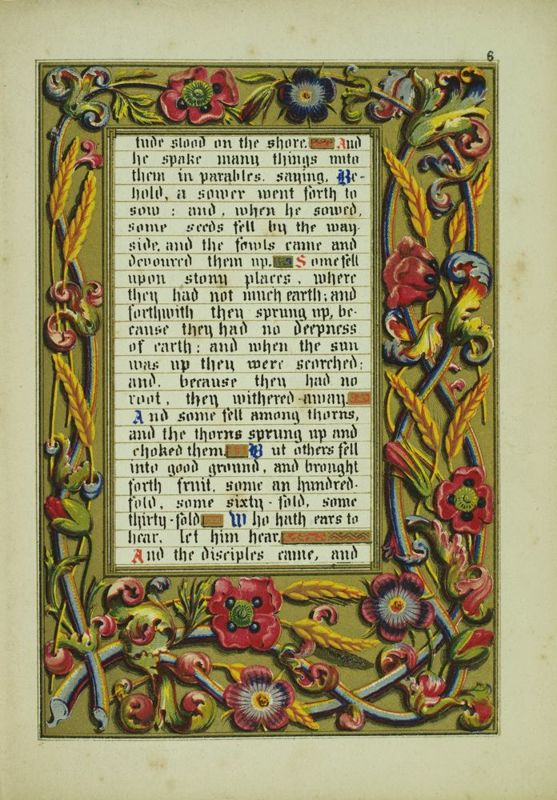 6
tude stood on the shore. And
he spake many things unto
them in parables. saying, Be-
hold, a sower went forth to
sow : and, when he sowed,
some seeds fell by the way-
side, and the fowls came and
devoured them up. Some fell
upon stony places, where
they had not much earth; and
forthwith they sprung up, be-
cause they had no deepness
of earth: and when the sun
was up they were scorched;
and, because they had no
root, they withered away.
And some fell among thorns,
and the thorns sprung up and
choked them. But others fell
into good ground, and brought
forth fruit, some an hundred-
fold, some sixty-fold, some
thirty-fold. Who hath ears to
hear, let him hear.
And the disciples came, and